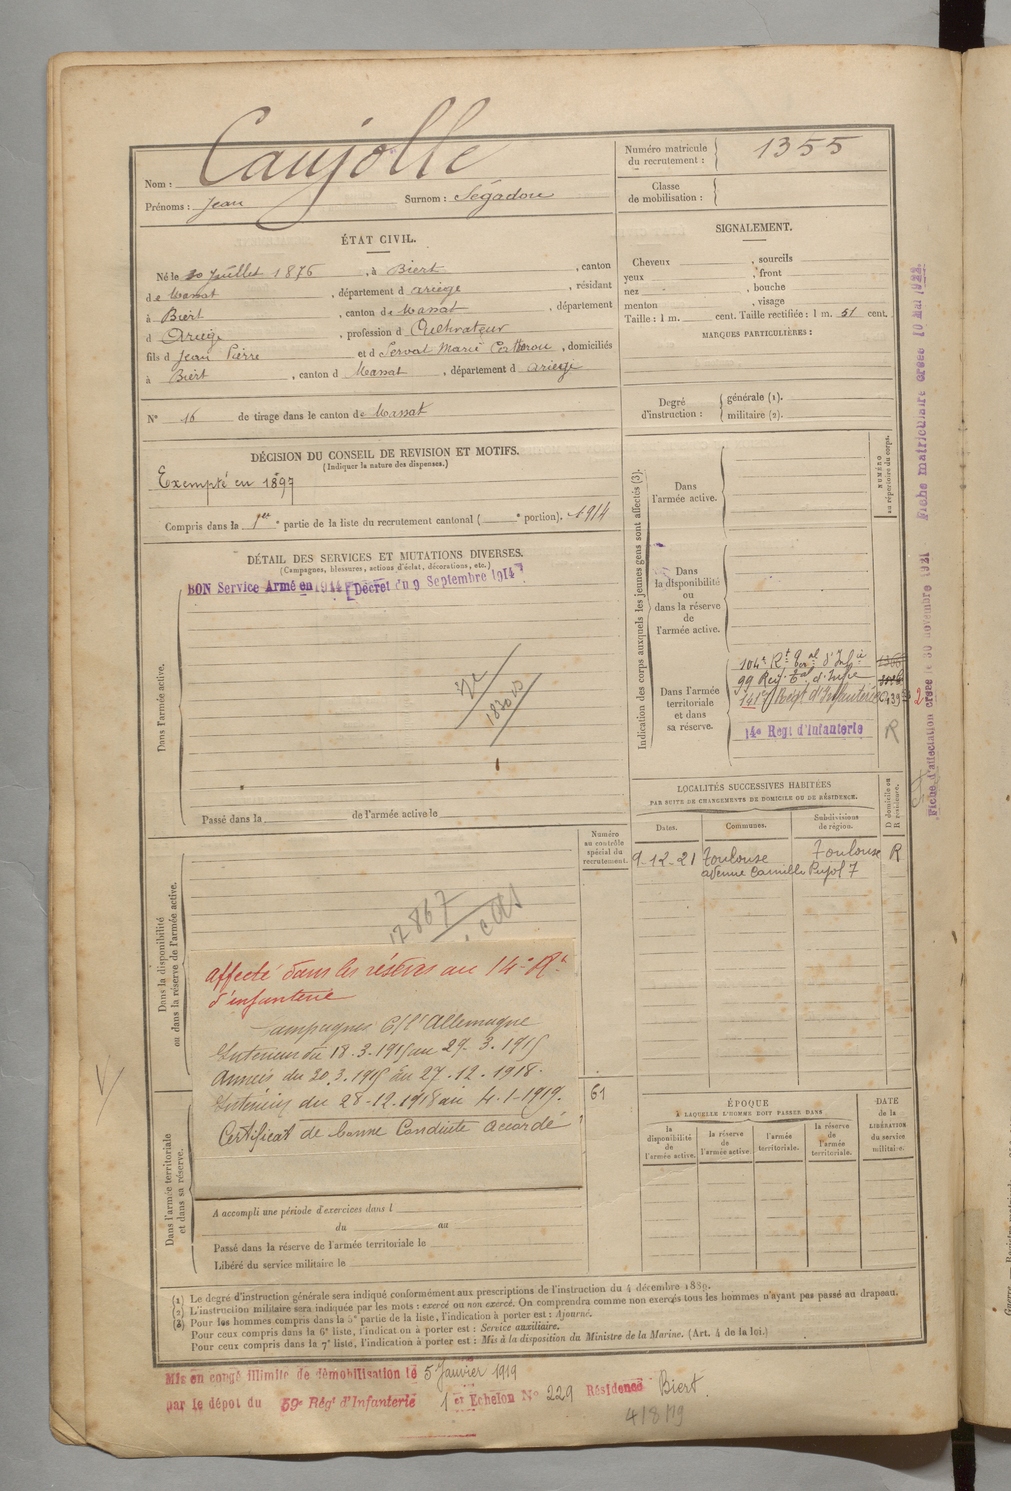 Nom : Caujolle
Prénoms : Jean Surnom : Ségadou
Numéro matricule du recrutement : 1355
Classe de mobilisation :
ÉTAT CIVIL.
Né le 30 Juillet 1876, à Biert, canton
de Massat, département d ariège, résidant
à Biert, canton de Massat, département
d Ariège, profession d Cultivateur
fils d Jean Pierre et d Servat Marie, domiciliés
à Biert, canton d Massat, département d ariège
N° 16 de tirage dans le canton de Massat
SIGNALEMENT.
Cheveux , sourcils
yeux , front
nez , bouche
menton , visage
Taille : 1 m. cent. Taille rectifiée : 1 m. 51 cent.
MARQUES PARTICULIÈRES :
Degré d'instruction : générale (1).
militaire (2).
DÉCISION DU CONSEIL DE REVISION ET MOTIFS.
(Indiquer la nature des dispenses.)
Exempté en 1897
Compris dans la 1ère partie de la liste du recrutement cantonal ( e portion). 1914
DÉTAIL DES SERVICES ET MUTATIONS DIVERSES.
(Campagnes, blessures, actions d'éclat, décorations, etc.)
BON Service Armé en 1914 [Décret du 9 Septembre 1914]
Dans l'armée active.
Passé dans la de l'armée active le
Indication des corps auxquels les jeunes gens sont affectés (3).
NUMÉRO au répertoire du corps.
Dans l'armée active.
Dans la disponibilité ou dans la réserve de l'armée active.
Dans l'armée territoriale et dans sa réserve.
104e Rt Teral d'Infie
99 Reg. Tal d'Infie
141e Régt d'Infanterie
14e Régt d'Infanterie R
LOCALITÉS SUCCESSIVES HABITÉES
PAR SUITE DE CHANGEMENTS DE DOMICILE OU DE RÉSIDENCE.
Dates. Communes. Subdivisions de région. D domicile ou R résidence.
9-12-21 Toulouse Toulouse R
avenue Camille Pujol 7
Numéro au contrôle spécial du recrutement.
61
Dans la disponibilité ou dans la réserve de l'armée active.
affecté dans les réserves au 14e Rt
d'infanterie
Campagnes C/ l'Allemagne
Intérieur du 18.3.1915 au 29.3.1915
Armées du 30.3.1915 au 27.12.1918.
Intérieur du 28-12.1918 au 4-1-1919.
Certificat de bonne Conduite accordé
Dans l'armée territoriale et dans sa réserve.
A accompli une période d'exercices dans l
du au
Passé dans la réserve de l'armée territoriale le
Libéré du service militaire le
ÉPOQUE
À LAQUELLE L'HOMME DOIT PASSER DANS
la disponibilité de l'armée active. la réserve de l'armée active. l'armée territoriale. la réserve de l'armée territoriale.
DATE de la LIBÉRATION du service militaire.
(1) Le degré d'instruction générale sera indiqué conformément aux prescriptions de l'instruction du 4 décembre 1889.
(2) L'instruction militaire sera indiquée par les mots : exercé ou non exercé. On comprendra comme non exercés tous les hommes n'ayant pas passé au drapeau.
(3) Pour les hommes compris dans la 5e partie de la liste, l'indication à porter est : Ajourné.
Pour ceux compris dans la 6e liste, l'indication à porter est : Service auxiliaire.
Pour ceux compris dans la 7e liste, l'indication à porter est : Mis à la disposition du Ministre de la Marine. (Art. 4 de la loi.)
Mis en congé illimité de démobilisation le 5 Janvier 1919
par le dépôt du 59e Régt d'Infanterie 1er Echelon N° 229 Résidence Biert.
4/8/19
Fiche d'affectation créée le 30 novembre 1921 Fiche matriculaire créée 10 Mai 1922